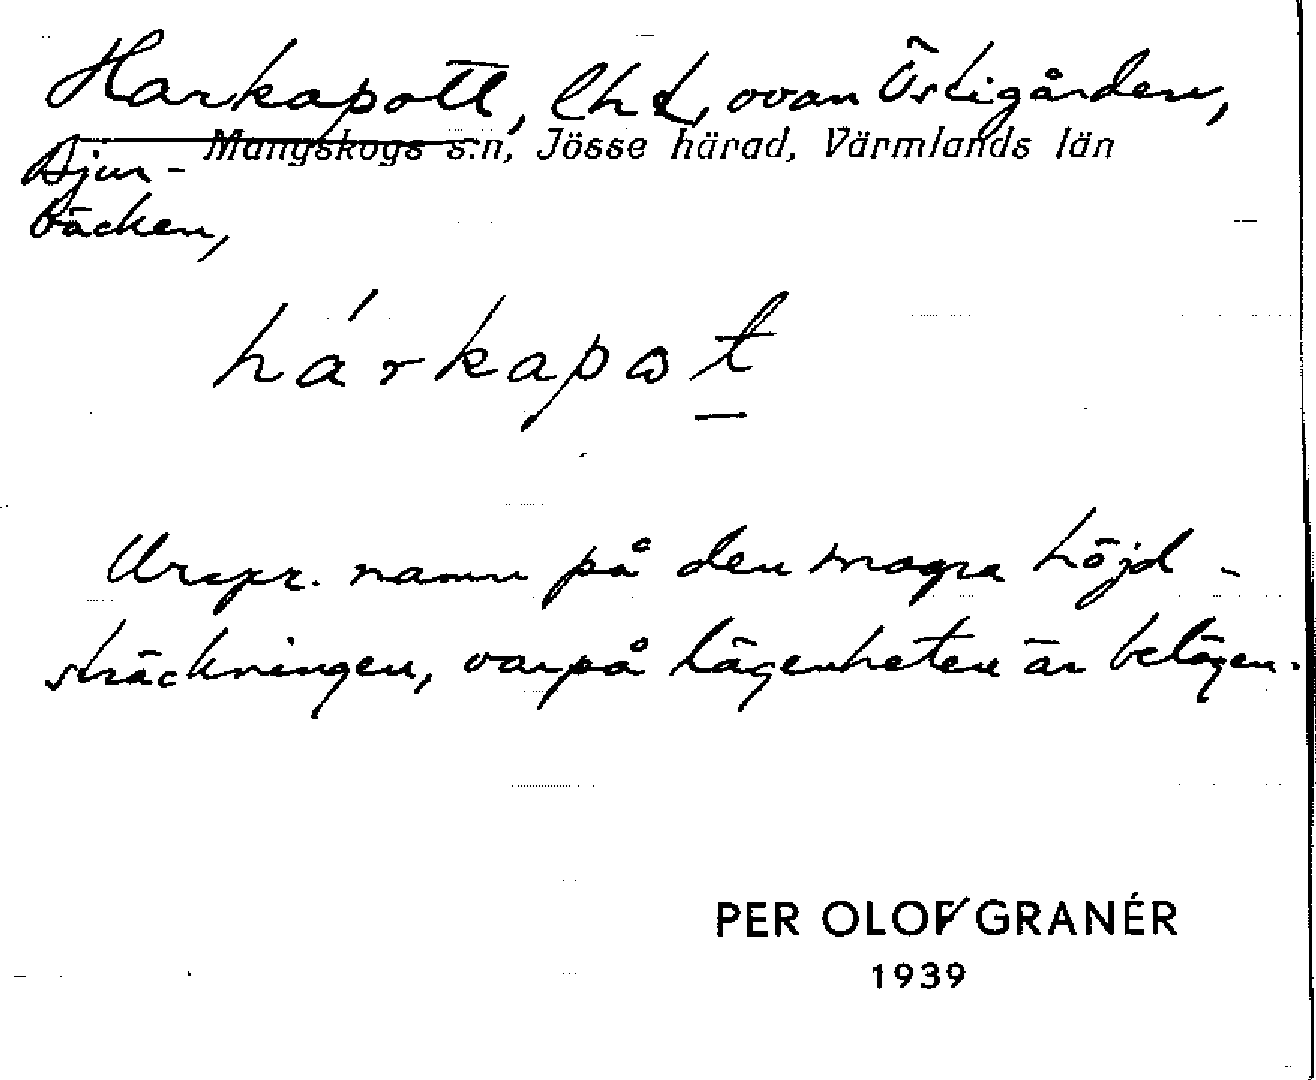 Harkapott, lht, ovan Östigården,
Mangskogs s:n, Jösse härad, Värmlands län
Djur-
bäcken,
hárkapɷt
Urspr. namn på den magra höjd-
sträckningen, varpå lägenheten är belägen.
PER OLOF GRANÉR
1939